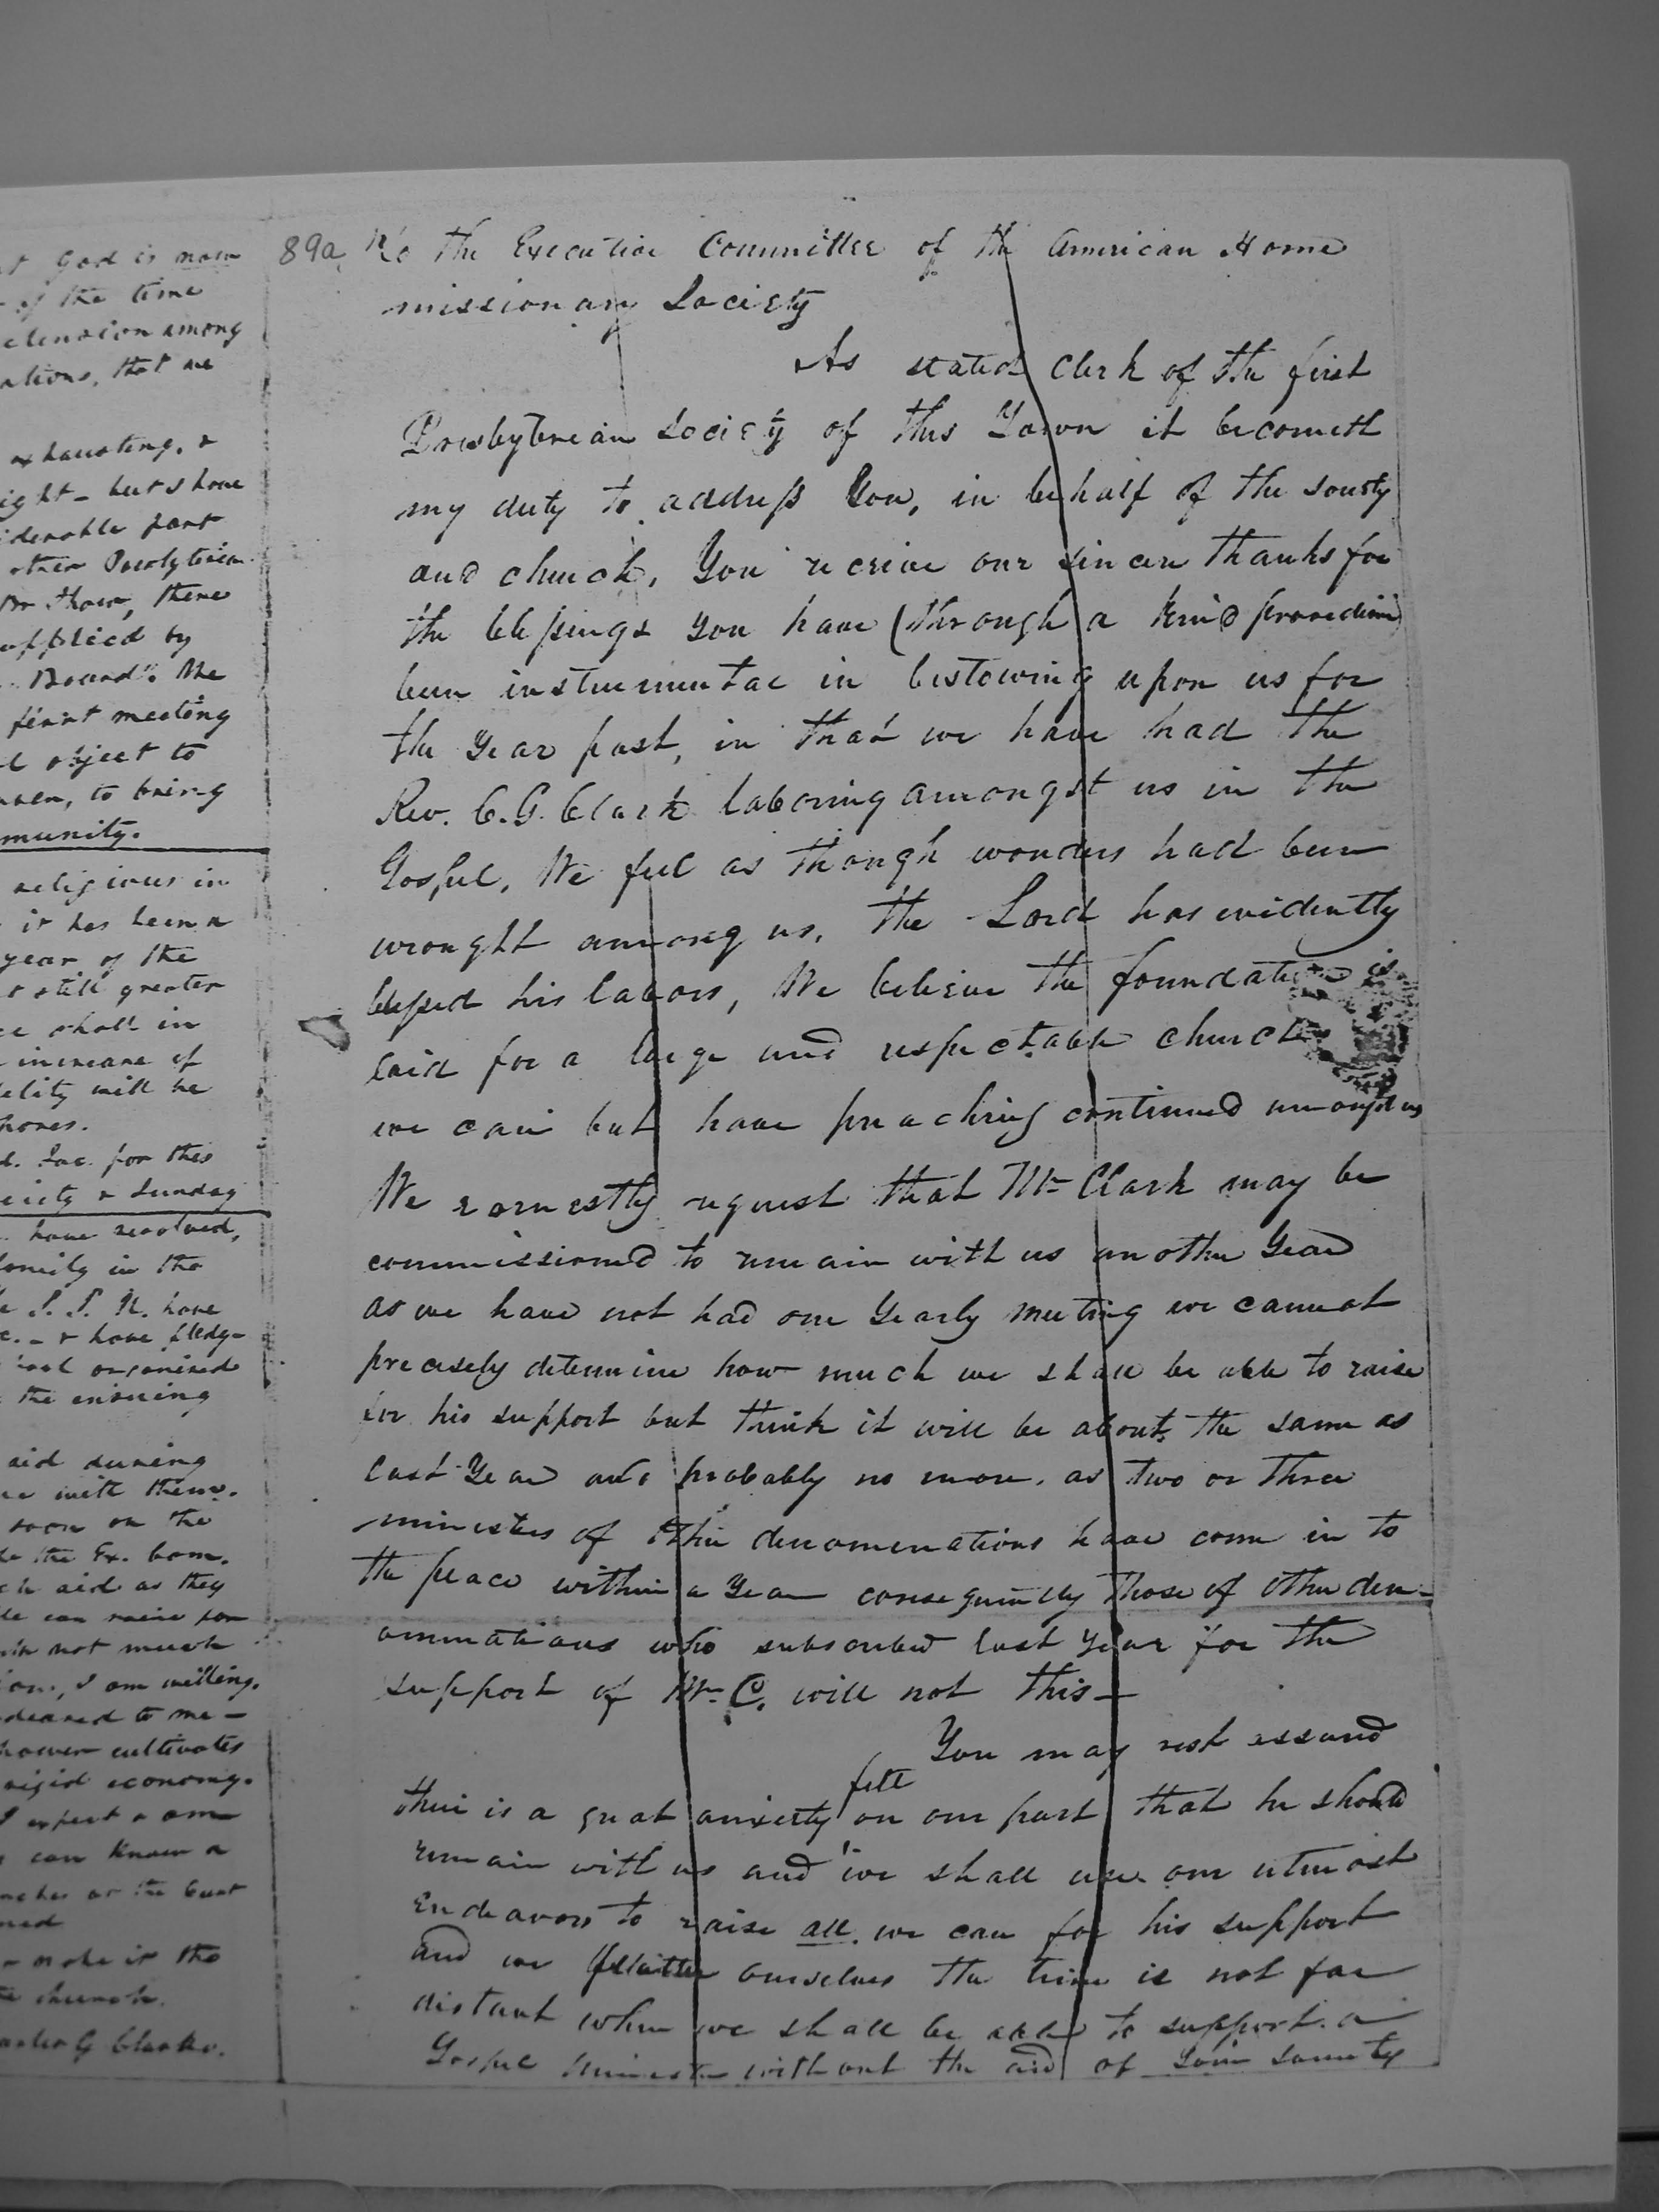 t God is now
of the time
clension among
ations, that we
exhausting, &
ight - but I have
iderable part
other Presbyterian
there
upplied by
Board". The
first meeting
l object to
to bring
munity.
religious in
it has been a
year of the
still greater
ce shall in
increase of
elity will be
hores.
d. Soc. for this
ciety & Sunday
have resolved,
family in the
S. S. U. have
c. - & have pledg-
organized
the ensuing
aid during
ne with them.
soon on the
the Ex. Com.
ch aid as they
le can raise for
not much
ion, I am willing.
deared to me -
however cultivates
rigid economy.
I expect & am
can know a
ches at the East
ned
make it the
church.
Charles G Clarke.
89a To the Executive Committee of the American Home
missionary Society
As stated Clerk of the first
Presbyterian Society of this Town it becometh
my duty to address You, in behalf of the society
and church, You receive our sincere thanks for
the blessings you have (through a kind providence)
been instrumental in bestowing upon us for
the Year past, in that we have had the
Rev. C. G. Clark laboring amongst us in the
Gospel, We feel as though wonders had been
wrought among us, the Lord has evidently
blessed his labors, We believe the foundation is
laid for a large and respectable church
we can but have preaching continued amongst us
We earnestly request that Mr Clark may be
commissioned to remain with us another Year
as we have not had our Yearly meeting we cannot
precisely determine how much we shall be able to raise
for his support but think it will be about the same as
last Year and probably no more. as two or three
ministers of other denominations have come in to
the place within a Year consequently those of other den-
ominations who subscribed last Year for the
support of Mr C. will not this —
You may rest assured
there is a great anxiety felt on our part that he should
remain with us and we shall use our utmost
Endeavors to raise all we can for his support
and we flatter ourselves the time is not far
distant when we shall be able to support a
Gospel Minister without the aid of Your society